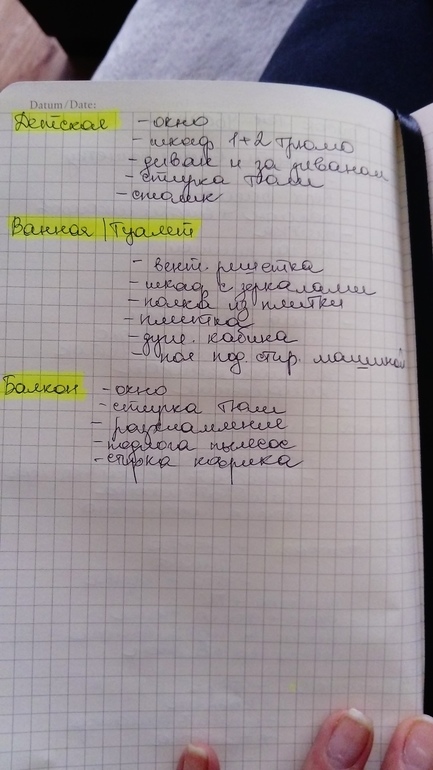 Datum/Date:
Детская - окно
- шкаф 1+2 трюмо
- диван и за диваном
- стирка тюли
- столик
Ванная/Туалет
- вент. решетка
- шкаф с зеркалами
- полка из плитки
- плитка
- душ. кабина
- пол под стир. машиной
Балкон - окно
- стирка тюли
- расхламление
- подлога пылесос
- стирка коврика